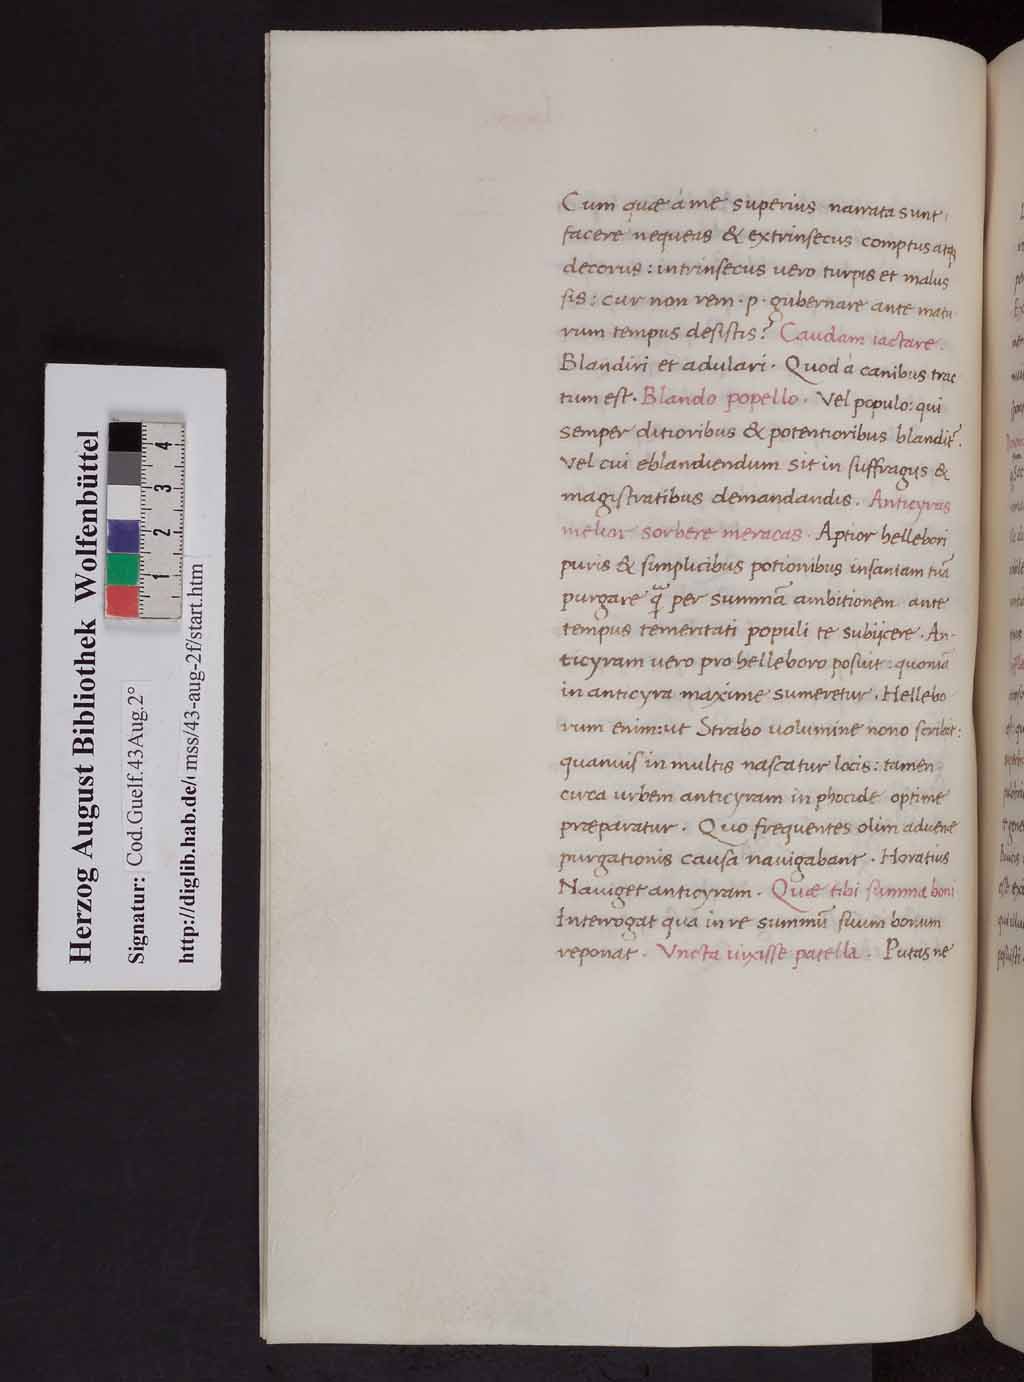 Cum quæ à me superius narrata sunt,
facere nequeas & extrinsecus comptus atq;
decorus: intrinsecus uero turpis et malus
sis: cur non rem · p · gubernare ante matu
rum tempus desistis? Caudam iactare.
Blandiri et adulari. Quod à canibus trac
tum est. Blando popello. Vel populo: qui
semper ditioribus & potentioribus blandit͛.
Vel cui eblandiendum sit in suffragijs &
magistratibus demandandis. Anticyras
melior sorbere meracas. Aptior hellebori
puris & simplicibus potionibus insaniam tuā
purgare q̄ per summā ambitionem ante
tempus temeritati populi te subijcere. An-
ticyram uero pro helleboro posuit: quoniā
in anticyra maxime sumeretur. Hellebo
rum enim: ut Strabo uolumine nono scribit:
quamuis in multis nascatur locis: tamen
circa urbem anticyram in phocide optime
præparatur. Quo frequentes olim aduenæ
purgationis causa nauigabant. Horatius
Nauiget anticyram. Quæ tibi summa boni
Interrogat qua in re summū suum bonum
reponat. Vncta uixisse patella. Putas ne
Herzog August Bibliothek Wolfenbüttel
Signatur: Cod.Guelf.43 Aug.2°
http://diglib.hab.de/mss/43-aug-2f/start.htm
1 2 3 4